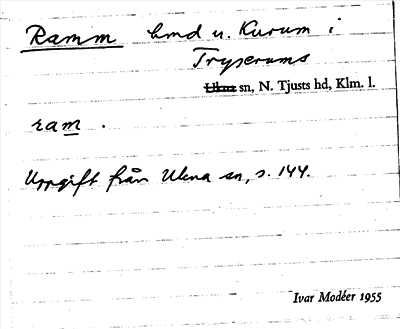 Ramm hmd u. Kurum i
Tryserums
Ukna sn, N. Tjusts hd, Klm. l.
ram .
Uppgift från Ukna sn, s. 144.
Ivar Modéer 1955